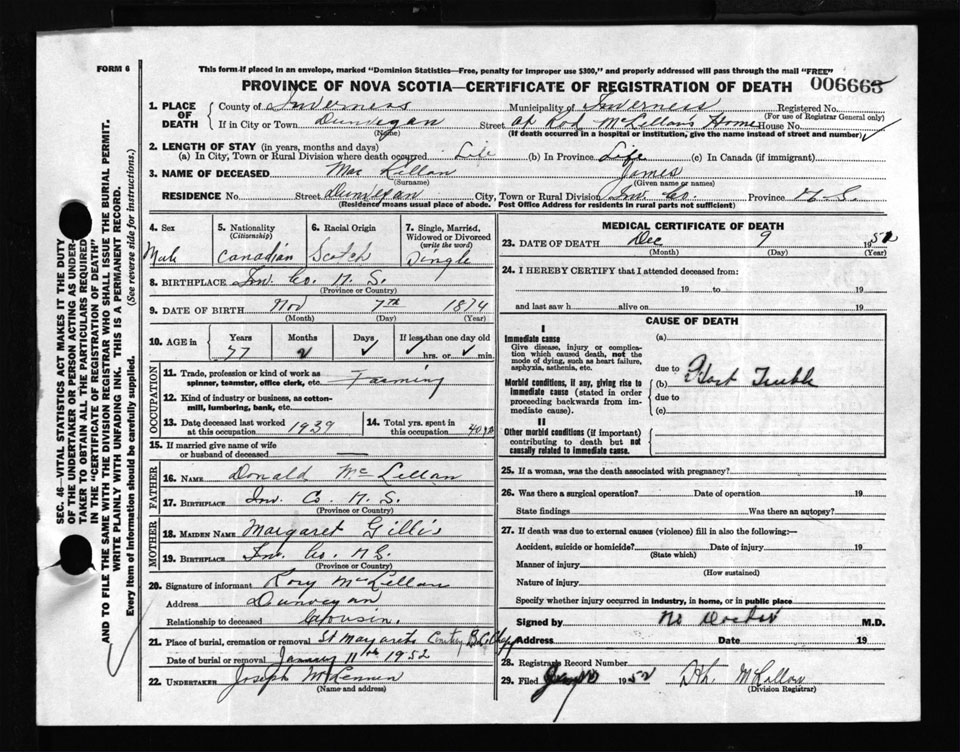 FORM 6
This form if placed in an envelope, marked "Dominion Statistics—Free, penalty for improper use $300," and properly addressed will pass through the mail "FREE"
PROVINCE OF NOVA SCOTIA—CERTIFICATE OF REGISTRATION OF DEATH 006665
1. PLACE OF DEATH
County of Inverness Municipality of Inverness Registered No.
(For use of Registrar General only)
If in City or Town Dunvegan Street at Rod McLellan's Home House No.
(Name) (If death occurred in a hospital or institution, give the name instead of street and number)
2. LENGTH OF STAY (in years, months and days)
(a) In City, Town or Rural Division where death occurred Life (b) In Province Life (c) In Canada (if immigrant)
3. NAME OF DECEASED Mac Lellan James
(Surname) (Given name or names)
RESIDENCE No. Street Dunvegan City, Town or Rural Division Inv. Co. Province N.S.
(Residence means usual place of abode. Post Office Address for residents in rural parts not sufficient)
4. Sex Male
5. Nationality (Citizenship) Canadian
6. Racial Origin Scotch
7. Single, Married, Widowed or Divorced (write the word) Single
8. BIRTHPLACE Inv. Co. N.S.
(Province or Country)
9. DATE OF BIRTH Nov 7th 1874
(Month) (Day) (Year)
10. AGE in Years 77 Months 2 Days ✓ If less than one day old hrs. or ✓ min.
OCCUPATION
11. Trade, profession or kind of work as spinner, teamster, office clerk, etc. Farming
12. Kind of industry or business, as cotton-mill, lumbering, bank, etc.
13. Date deceased last worked at this occupation 1939
14. Total yrs. spent in this occupation 40 yrs
15. If married give name of wife or husband of deceased —
FATHER
16. NAME Donald McLellan
17. BIRTHPLACE Inv. Co. N.S.
(Province or Country)
MOTHER
18. MAIDEN NAME Margaret Gillis
19. BIRTHPLACE Inv. Co. N.S.
(Province or Country)
20. Signature of informant Rory McLellan
Address Dunvegan
Relationship to deceased Cousin.
21. Place of burial, cremation or removal St Margarets Cemetery
Date of burial or removal January 11th 1952
22. UNDERTAKER Joseph McLennen
(Name and address)
MEDICAL CERTIFICATE OF DEATH
23. DATE OF DEATH Dec 9 1952
(Month) (Day) (Year)
24. I HEREBY CERTIFY that I attended deceased from:
19 to 19
and last saw h alive on 19
CAUSE OF DEATH
I
Immediate cause
Give disease, injury or complication which caused death, not the mode of dying, such as heart failure, asphyxia, asthenia, etc.
(a)
due to
Morbid conditions, if any, giving rise to immediate cause (stated in order proceeding backwards from immediate cause).
(b) Hart Truble
due to
(c)
II
Other morbid conditions (if important) contributing to death but not causally related to immediate cause.
25. If a woman, was the death associated with pregnancy?
26. Was there a surgical operation? Date of operation 19
State findings Was there an autopsy?
27. If death was due to external causes (violence) fill in also the following:—
Accident, suicide or homicide? Date of injury 19
(State which)
Manner of injury
(How sustained)
Nature of injury
Specify whether injury occurred in industry, in home, or in public place
Signed by No Doctor M.D.
Address Date 19
28. Registrar's Record Number
29. Filed 1952 McLellan
(Division Registrar)
SEC. 46—VITAL STATISTICS ACT MAKES IT THE DUTY
OF THE UNDERTAKER OR PERSON ACTING AS UNDER-
TAKER TO OBTAIN ALL THE PARTICULARS REQUIRED
IN THE "CERTIFICATE OF REGISTRATION OF DEATH"
AND TO FILE THE SAME WITH THE DIVISION REGISTRAR WHO SHALL ISSUE THE BURIAL PERMIT.
WRITE PLAINLY WITH UNFADING INK. THIS IS A PERMANENT RECORD.
Every item of information should be carefully supplied. (See reverse side for instructions.)